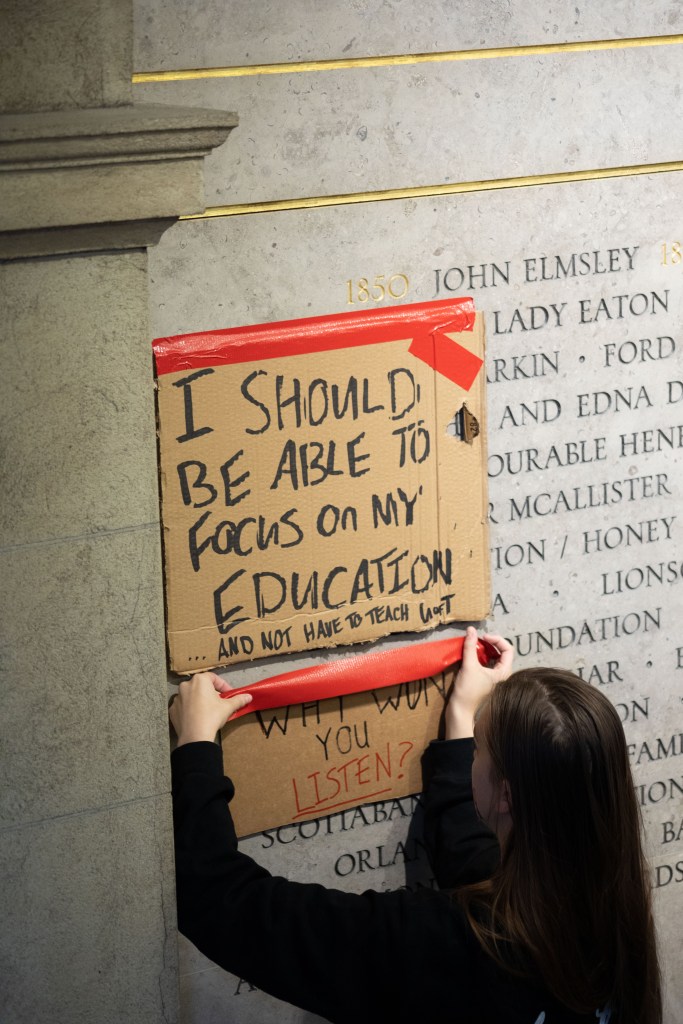 1850 JOHN ELMSLEY 18
LADY EATON
ARKIN • FORD
AND EDNA D
OURABLE HENR
R MCALLISTER
TION / HONEY
A • LIONSG
OUNDATION
IAR •
ON
FAMI
ION
BA
DS
I SHOULD
BE ABLE TO
FOCUS ON MY
EDUCATION
... AND NOT HAVE TO TEACH GOFT
WHY WON
YOU
LISTEN?
SCOTIABAN
ORLAN